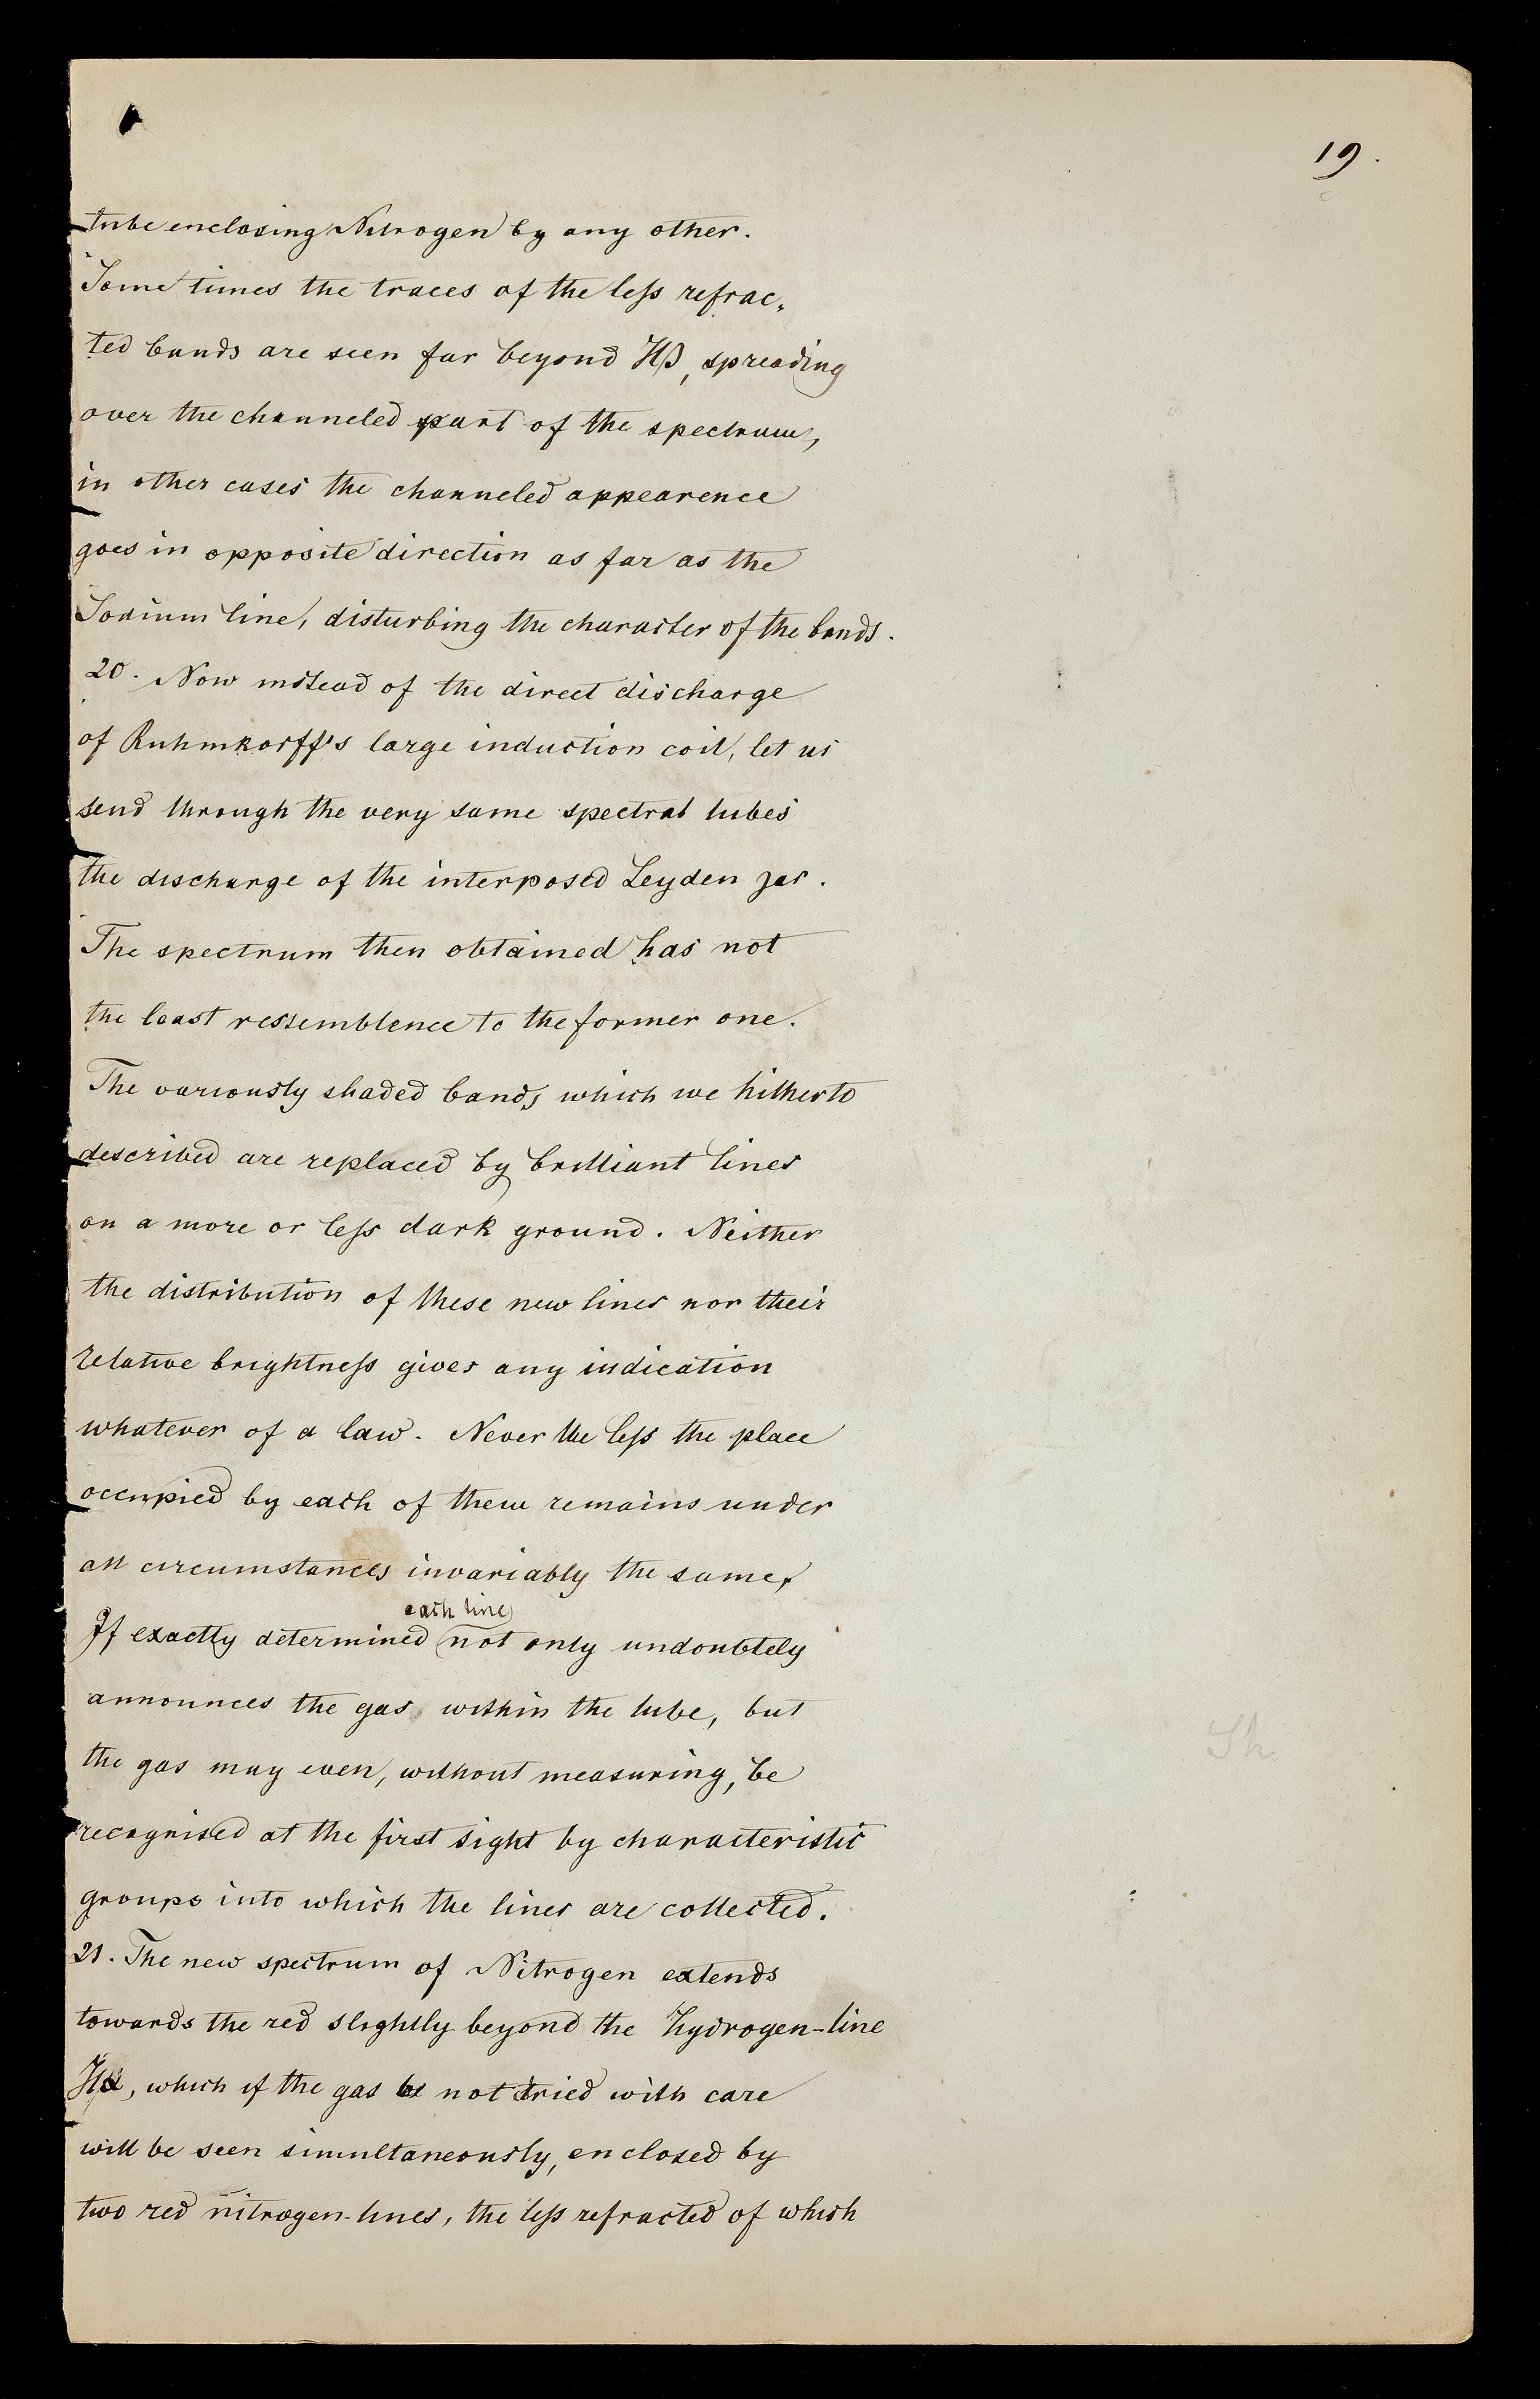 19.
tube enclosing Nitrogen by any other.
Some times the traces of the less refrac-
ted bands are seen far beyond Hβ, spreading
over the channeled part of the spectrum,
in other cases the channeled appearence
goes in opposite direction as far as the
Sodium line, disturbing the character of the bands.
20. Now instead of the direct discharge
of Ruhmkorff's large induction coil, let us
send through the very same spectral tubes
the discharge of the interposed Leyden jar.
The spectrum then obtained has not
the least ressemblence to the former one.
The variously shaded bands which we hitherto
described are replaced by brilliant lines
on a more or less dark ground. Neither
the distribution of these new lines nor their
relative brightness gives any indication
whatever of a law. Never the less the place
occupied by each of them remains under
all circumstances invariably the same.
each line
If exactly determined not only undoubtely
announces the gas within the tube, but
the gas may even, without measuring, be
recognised at the first sight by characteristic
groups into which the lines are collected.
21. The new spectrum of Nitrogen extends
towards the red slightly beyond the Hydrogen-line
Hα, which if the gas be not dried with care
will be seen simultaneously, enclosed by
two red nitrogen-lines, the less refracted of which